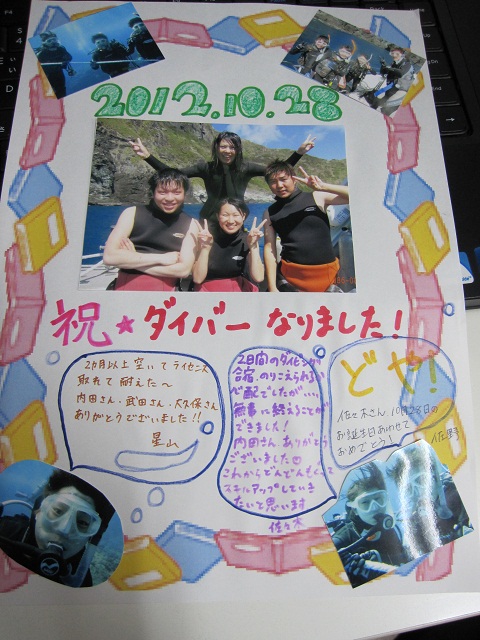 2012.10.28
祝★ダイバーなりました!
2カ月以上空いてライセンス
取れて耐えた〜
内田さん・武田さん・大久保さん
ありがとうございました!!
星山
2日間のダイビング
合宿、のりこえられるか
心配でしたが…
無事に終えることが
できました!
内田さん ありがとう
ございました
これからどんどんもぐって
スキルアップしていき
たいと思います
佐々木
どや!
佐々木さん、10月28日の
お誕生日あわせて
おめでとう!
佐野